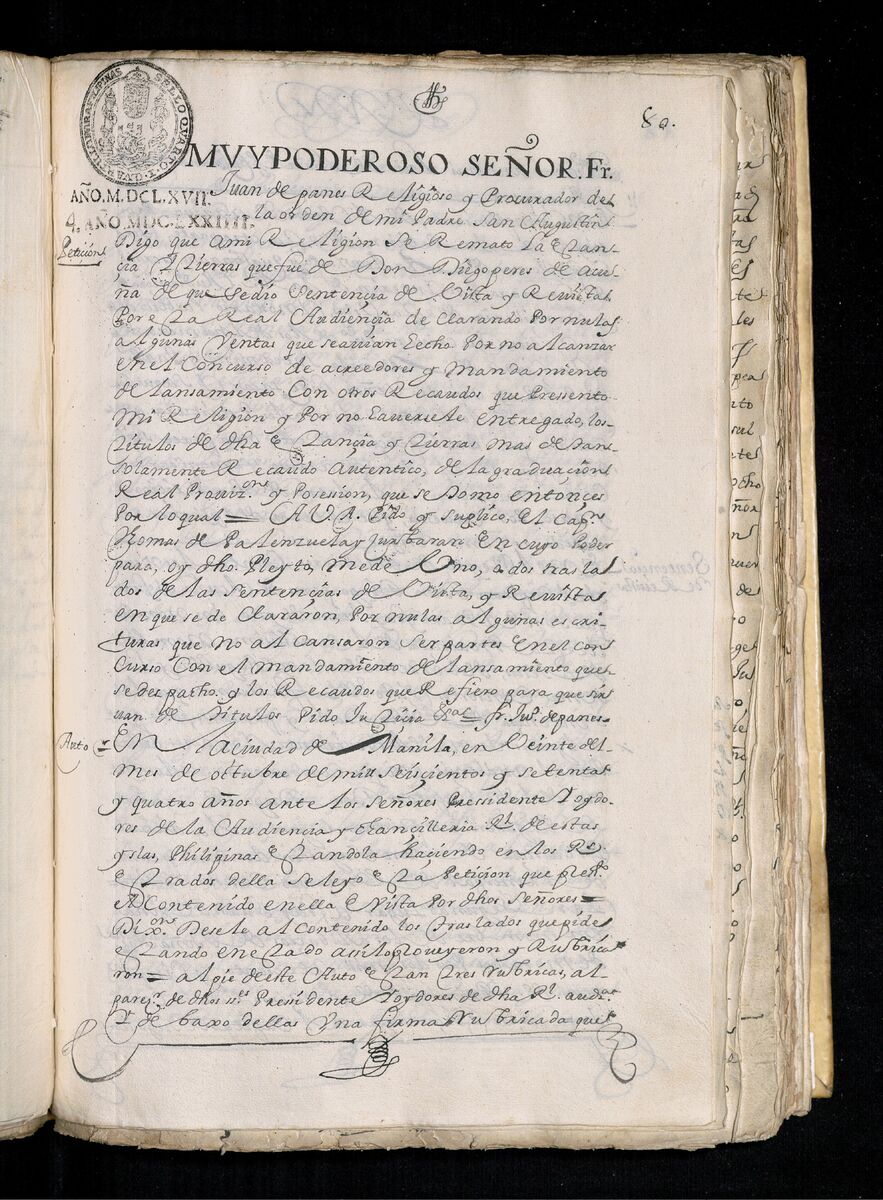 80.
SELLO QVARTO
MVY PODEROSO SEÑOR. Fr.
AÑO. M. DCL. XVII.
Juan de panes Religioso y Procurador de
AÑO MDCLXXIIII.
la orden de mi Padre San Augustin
Petición
Digo que ami Religion se Remato la Estan-
cia y tierras que fue de Don Diego peres de acu-
ña de que sedio Sentençia de Vista y Revista
Por esta Real Audiençia declarando Por nulas
algunas Ventas que seauian Eecho Por no alcanzar
en el Concurso de acreedores y mandamiento
de lansamiento Con otros Recaudos que Pressento
Mi Religion y Por no Eaversele Entregado, los
titulos de dha Estançia y tierras mas de tan
solamente Recaudo autentico, de la graduaçion
Real Prouizon y Posession, que se tomo entonçes
Por loqual = A V. A. Pido y suplico, El Capn
Thomas de Palenzuela y En cuyo Poder
para, oy dho. Pleyto, mede Uno, o dos trasla
dos de las sentençias de Vista, y Revista
en que se declararon, Por nulas algunas escri-
turas que no alcansaron ser partes En el con
curso Con el mandamiento de lansamiento que
se despacho y los Recaudos que Refiero para que sir
uan de titulos Pido Justiçia = fr. Jun. de panes
Auto =
En la ciudad de Manila, en Veinte del
mes de octubre de mill seiscientos y setenta
y quatro años ante los señores Pressidente Eoydo-
res de la Audiencia y Chançilleria Rl. de estas
yslas, Philipinas Estandola haçiendo en los Rs.
Estrados della se leyo Esta Petiçion que presto.
el Contenido enella E vista Por dhos Señores =
Dixon. Desele al contenido los traslados que pide
estando en estado assilo Proueyeron y Rubrica
ron = al pie de este Auto Estan tres rubricas, al
pareser de dhos ss. Pressidente Eoydores de dha Rl. auda.
Y de baxo dellas Una firma Rubricada que